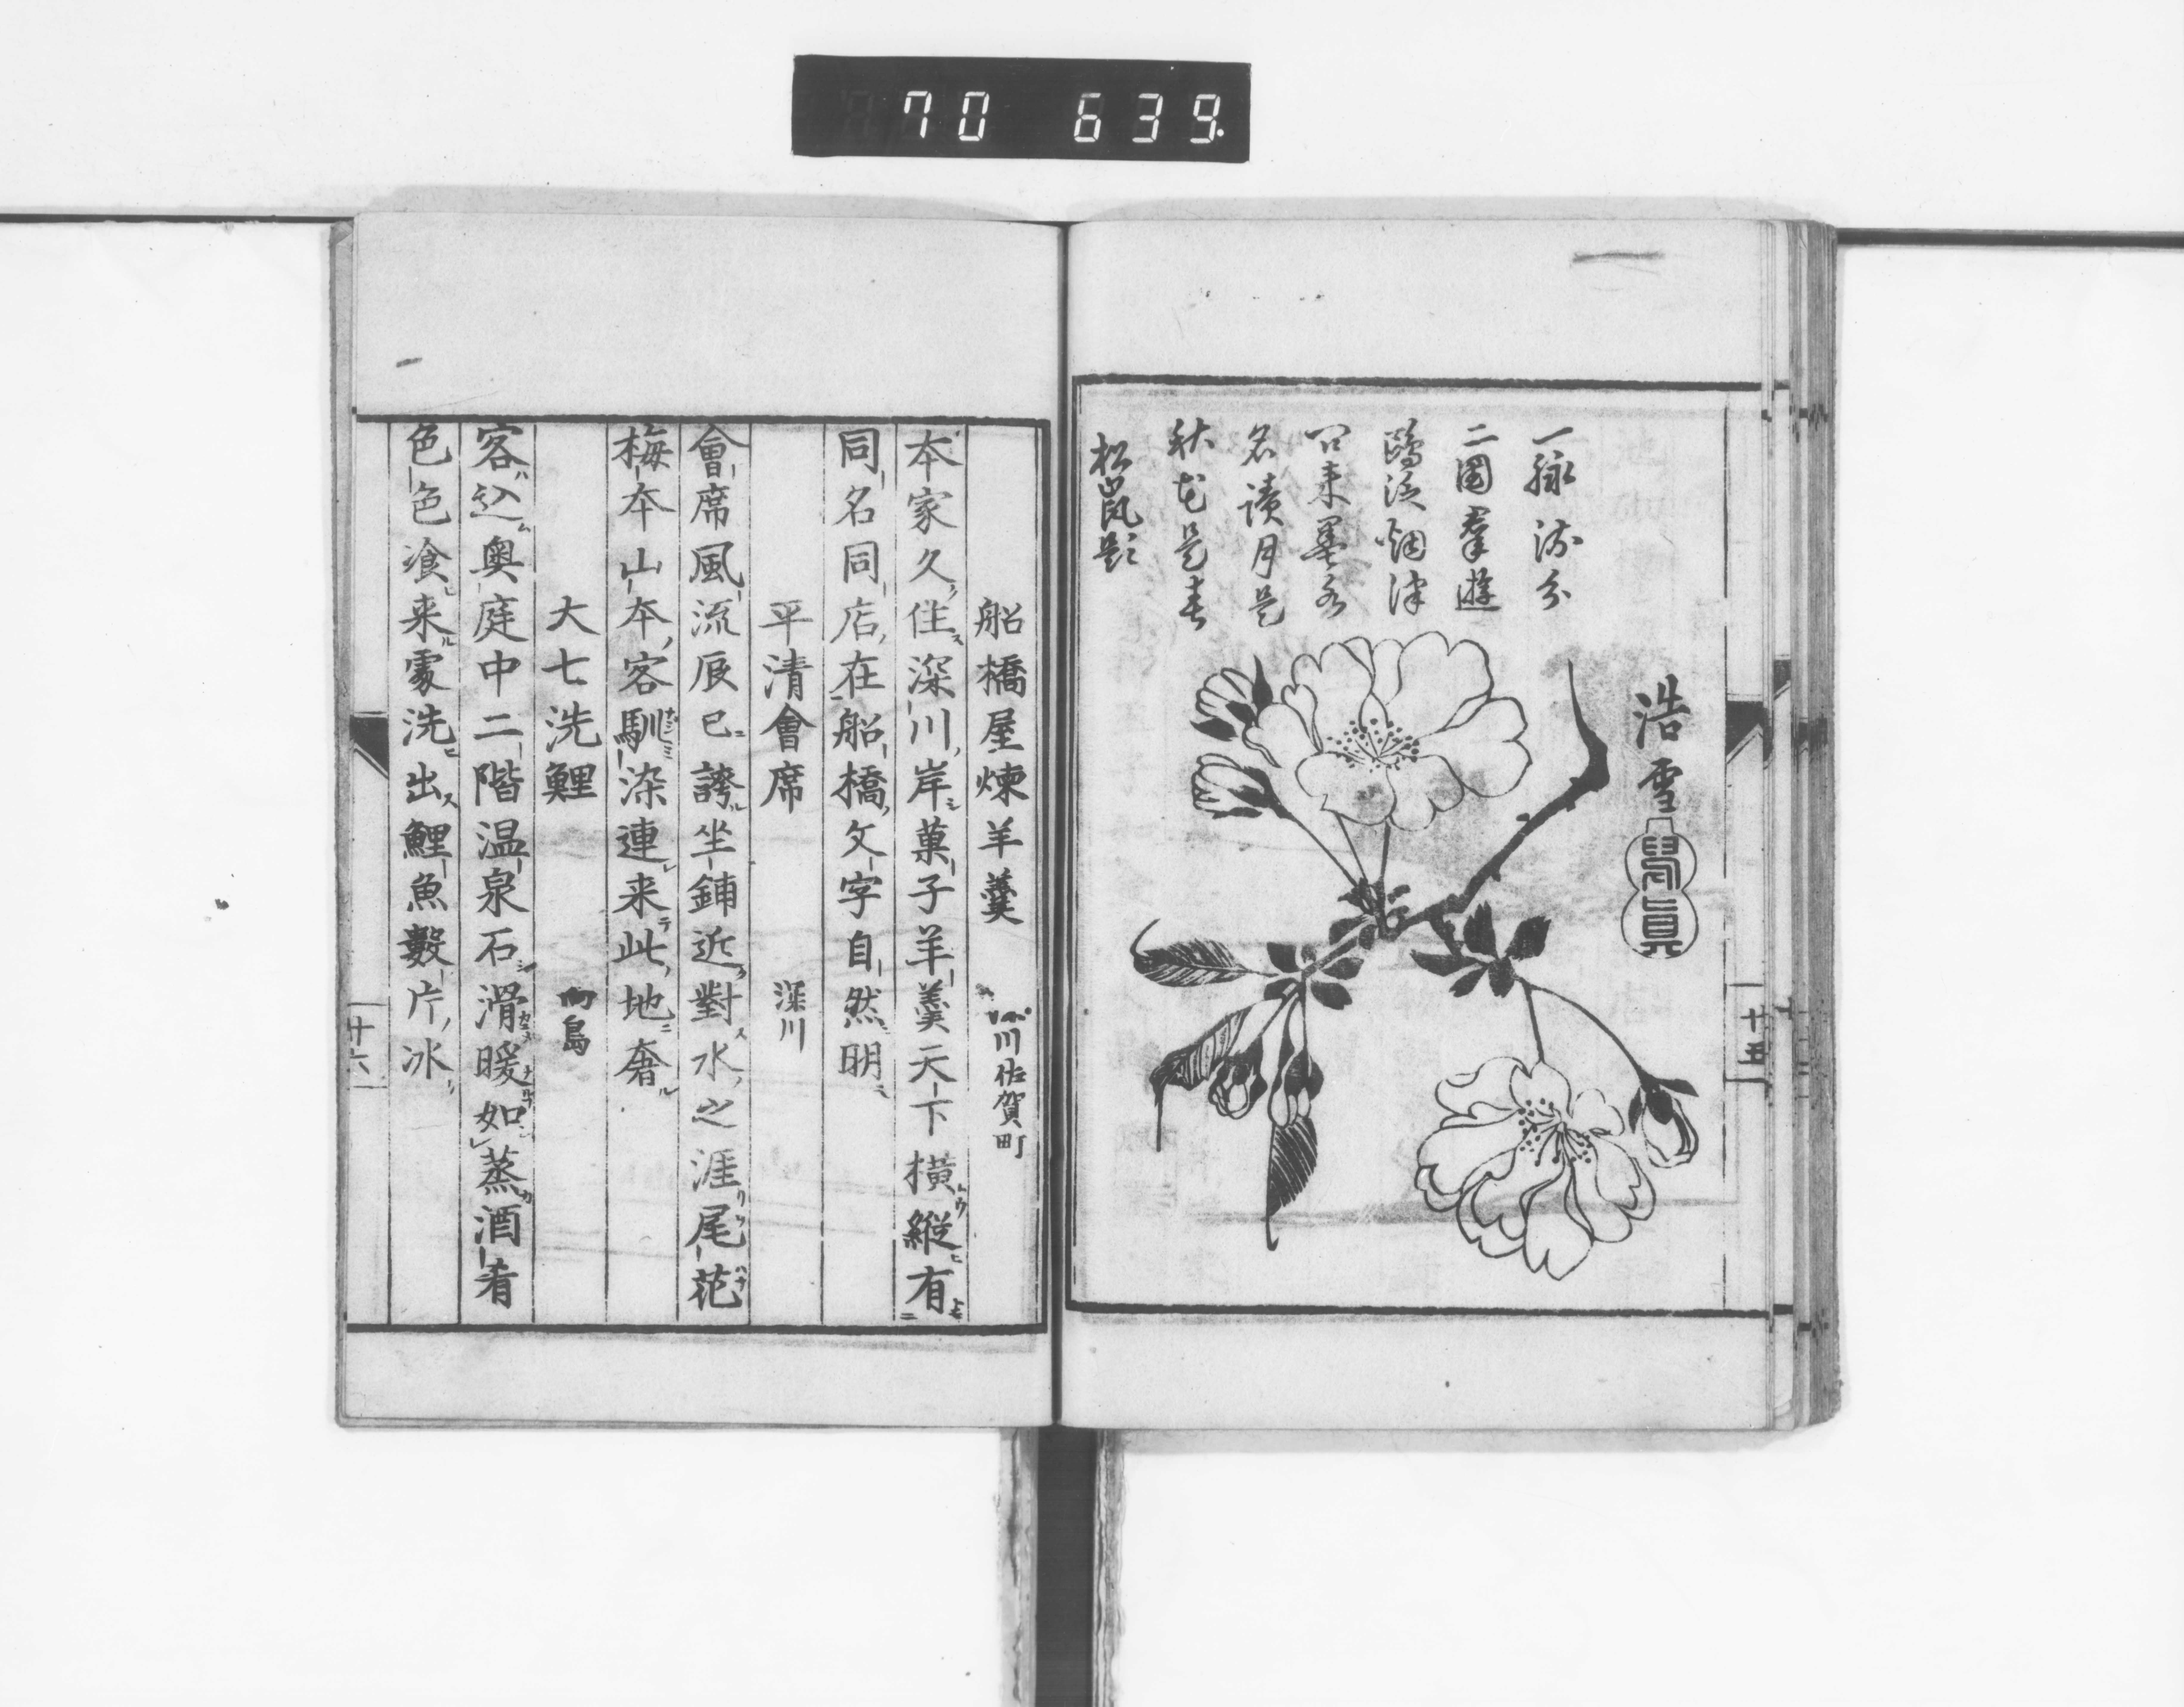 70 639
一脉流分
二國羣遊
鷗汲烟津
名讀月是
秋花是春
浩雪
十五
船橋屋煉羊羹 川佐賀町
本家久住深川岸菓子羊羹天下橫縱有
同名同店在船橋文字自然明
平清會席 深川
會席風流辰巳誇坐鋪近對水之涯尾花
梅本山本客馴染連来此地奢
大七洗鯉 向島
客込奥庭中二階温泉石滑暖如蒸酒肴
色色飡来䖏洗出鯉魚數片冰
十六